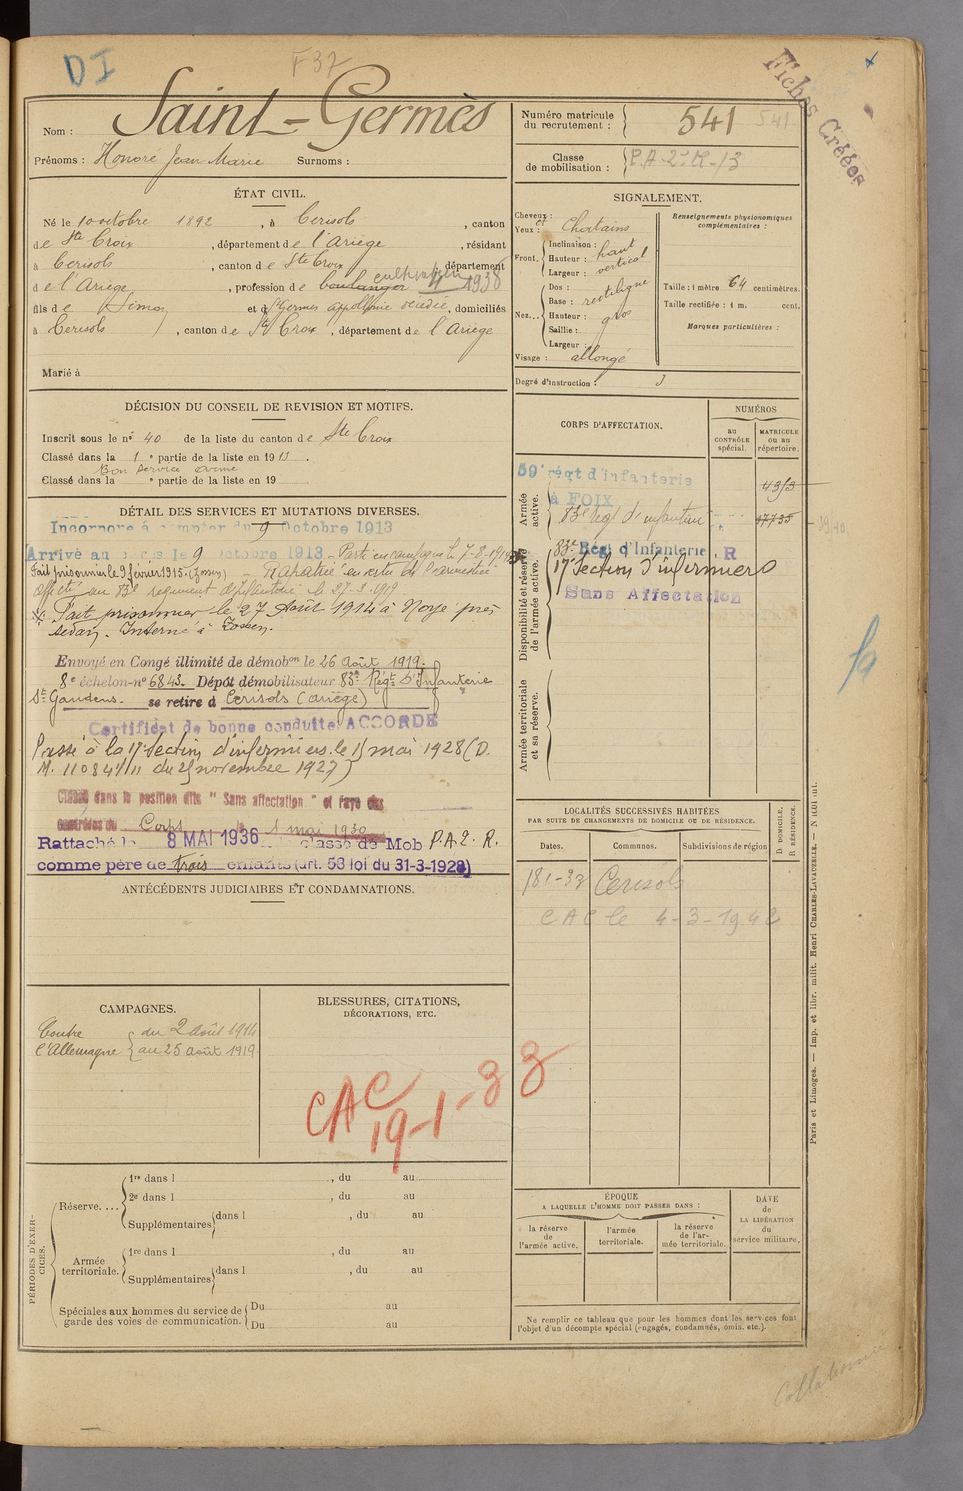 DI
F37
Fiches Créées
Nom : Saint-Germès
Prénoms : Honoré Jean Marie Surnoms :
ÉTAT CIVIL.
Né le 10 octobre 1892, à Cerisols, canton
de Ste Croix, département de l'Ariège, résidant
à Cerisols, canton de Ste Croix, département
cultivateur 1938
de l'Ariège, profession de boulanger
fils de Simon et de St Germes appollonie décédée, domiciliés
à Cerisols, canton de Ste Croix, département de l'Ariège
Marié à
DÉCISION DU CONSEIL DE REVISION ET MOTIFS.
Inscrit sous le no 40 de la liste du canton de Ste Croix
Classé dans la 1e partie de la liste en 1913.
Bon Service armé
Classé dans la e partie de la liste en 19
DÉTAIL DES SERVICES ET MUTATIONS DIVERSES.
Incorporé à compter du 9 Octobre 1913
Arrivé au corps le 9 Octobre 1913 - Parti en campagne le 7-8-1914
Fait prisonnier le 9 février 1915. (Zossen) Rapatrié en vertu de l'armistice
affecté au 83e régiment d'infanterie le 27-3-1919
Fait prisonnier le 27 Août 1914 à Noyé près
Sedan. Interné à Zossen.
Envoyé en Congé illimité de démobon le 26 août 1919.
8e échelon-no 6843. Dépôt démobilisateur 83e Régt d'Infanterie
St Gaudens. se retire à Cerisols (ariège)
Certificat de bonne conduite: ACCORDÉ
Passé à la 17e Section d'infirmiers le 15 mai 1928 (D.
M. 11084 1/11 du 25 novembre 1927)
Classé dans la position dite "Sans affectation" et rayé des
contrôles du Corps le 1 mai 1930
Rattaché le 8 MAI 1936 classe de Mob P.A.2.R.
comme père de trois enfants (art. 58 loi du 31-3-1928)
ANTÉCÉDENTS JUDICIAIRES ET CONDAMNATIONS.
CAMPAGNES.
Contre l'Allemagne
du 2 Août 1914
au 25 août 1919
BLESSURES, CITATIONS,
DÉCORATIONS, ETC.
CAC
19-1-33
PÉRIODES D'EXERCICES.
Réserve....
1re dans l , du au
2e dans l , du au
Supplémentaires dans l , du au
Armée territoriale.
1re dans l , du au
Supplémentaires dans l , du au
Spéciales aux hommes du service de garde des voies de communication.
Du au
Du au
Numéro matricule du recrutement : 541 541
Classe de mobilisation : P.A-2e R-13
SIGNALEMENT.
Cheveux : et
Yeux : Chatains
Front. Inclinaison :
Hauteur : haut
Largeur : vertical
Nez... Dos :
Base : rectiligne
Hauteur : gros
Saillie :
Largeur :
Visage : allongé
Renseignements physionomiques complémentaires :
Taille : 1 mètre 64 centimètres.
Taille rectifiée : 1 m. cent.
Marques particulières :
Degré d'instruction : 3
CORPS D'AFFECTATION.
NUMÉROS
au CONTRÔLE spécial.
MATRICULE ou au répertoire.
Armée active.
59e régt d'infanterie
à FOIX
83e régt d'infanterie
Disponibilité et réserve de l'armée active.
83e Régt d'Infanterie R
17e Section d'infirmiers
Sans Affectation
Armée territoriale et sa réserve.
LOCALITÉS SUCCESSIVES HABITÉES
PAR SUITE DE CHANGEMENTS DE DOMICILE OU DE RÉSIDENCE.
Dates. Communes. Subdivisions de région
D. DOMICILE, R RÉSIDENCE.
Cerisols
CAC le 4-3-1942
ÉPOQUE
A LAQUELLE L'HOMME DOIT PASSER DANS :
la réserve de l'armée active.
l'armée territoriale.
la réserve de l'armée territoriale.
DATE de LA LIBÉRATION du service militaire.
Ne remplir ce tableau que pour les hommes dont les services font
l'objet d'un décompte spécial (engagés, condamnés, omis, etc.).
Paris et Limoges. — Imp. et libr. milit. Henri CHARLES-LAVAUZELLE.